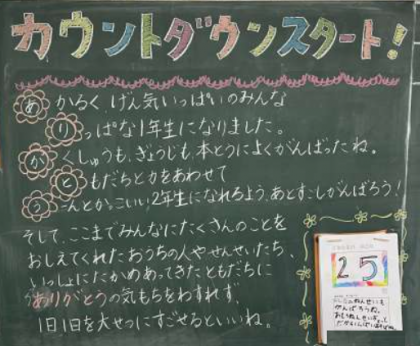 カウントダウンスタート!
あかるく、げん気いっぱいのみんな
りっぱな1年生になりました。
がくしゅうも、ぎょうじも、本とうによくがんばったね。
ともだちと力をあわせて
うーんとかっこいい2年生になれるよう、あとすこしがんばろう!
そして、ここまでみんなにたくさんのことを
おしえてくれたおうちの人やせんせいたち、
いっしょにたかめあってきたともだちに
ありがとうの気もちをわすれず、
1日1日を大せつにすごせるといいね。
25